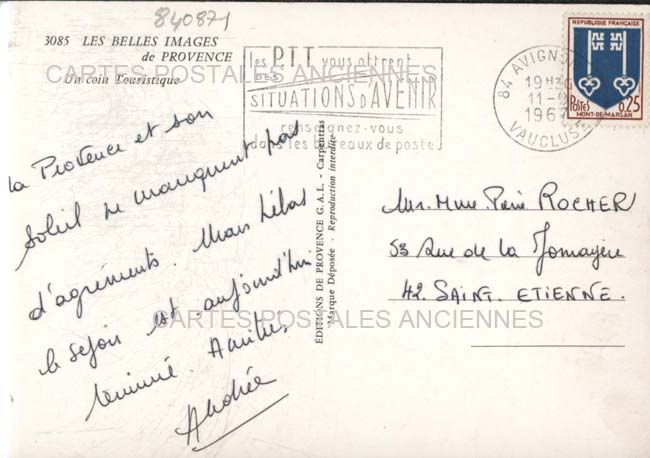 840871
3085 LES BELLES IMAGES
de PROVENCE
Un coin Touristique
CARTES POSTALES ANCIENNES
les PTT vous offrent
DES
SITUATIONS D'AVENIR
renseignez-vous
dans les bureaux de poste
84 AVIGNON
19H30
11-
196
VAUCLUSE
REPUBLIQUE FRANÇAISE
POSTES
0,25
MONT-DE-MARSAN
La Provence et son
soleil ne manquent pas
d'agréments. Mais hélas
le séjour est aujourd'hui
terminé. Amitiés
Andrée
ÉDITIONS DE PROVENCE G.A.L. - Carpentras
Marque Déposée - Reproduction interdite
Mr. Mme Pierre ROCHER
53 Rue de la Jomayère
42. SAINT. ETIENNE.
CARTES POSTALES ANCIENNES